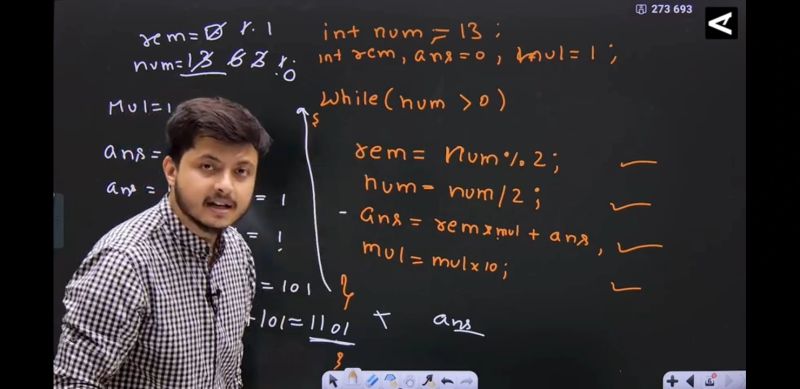 273 693
rem = 0 1 1
num = 13 6 3 1 0
Mul = 1
ans =
ans =
= 1
= 1
= 101
+101 = 1101
int num = 13 ;
int rem, ans = 0 , mul = 1 ;
While ( num > 0 )
{
rem = Num % 2 ;
num = num / 2 ;
ans = rem x mul + ans ,
mul = mul x 10 ;
}
ans